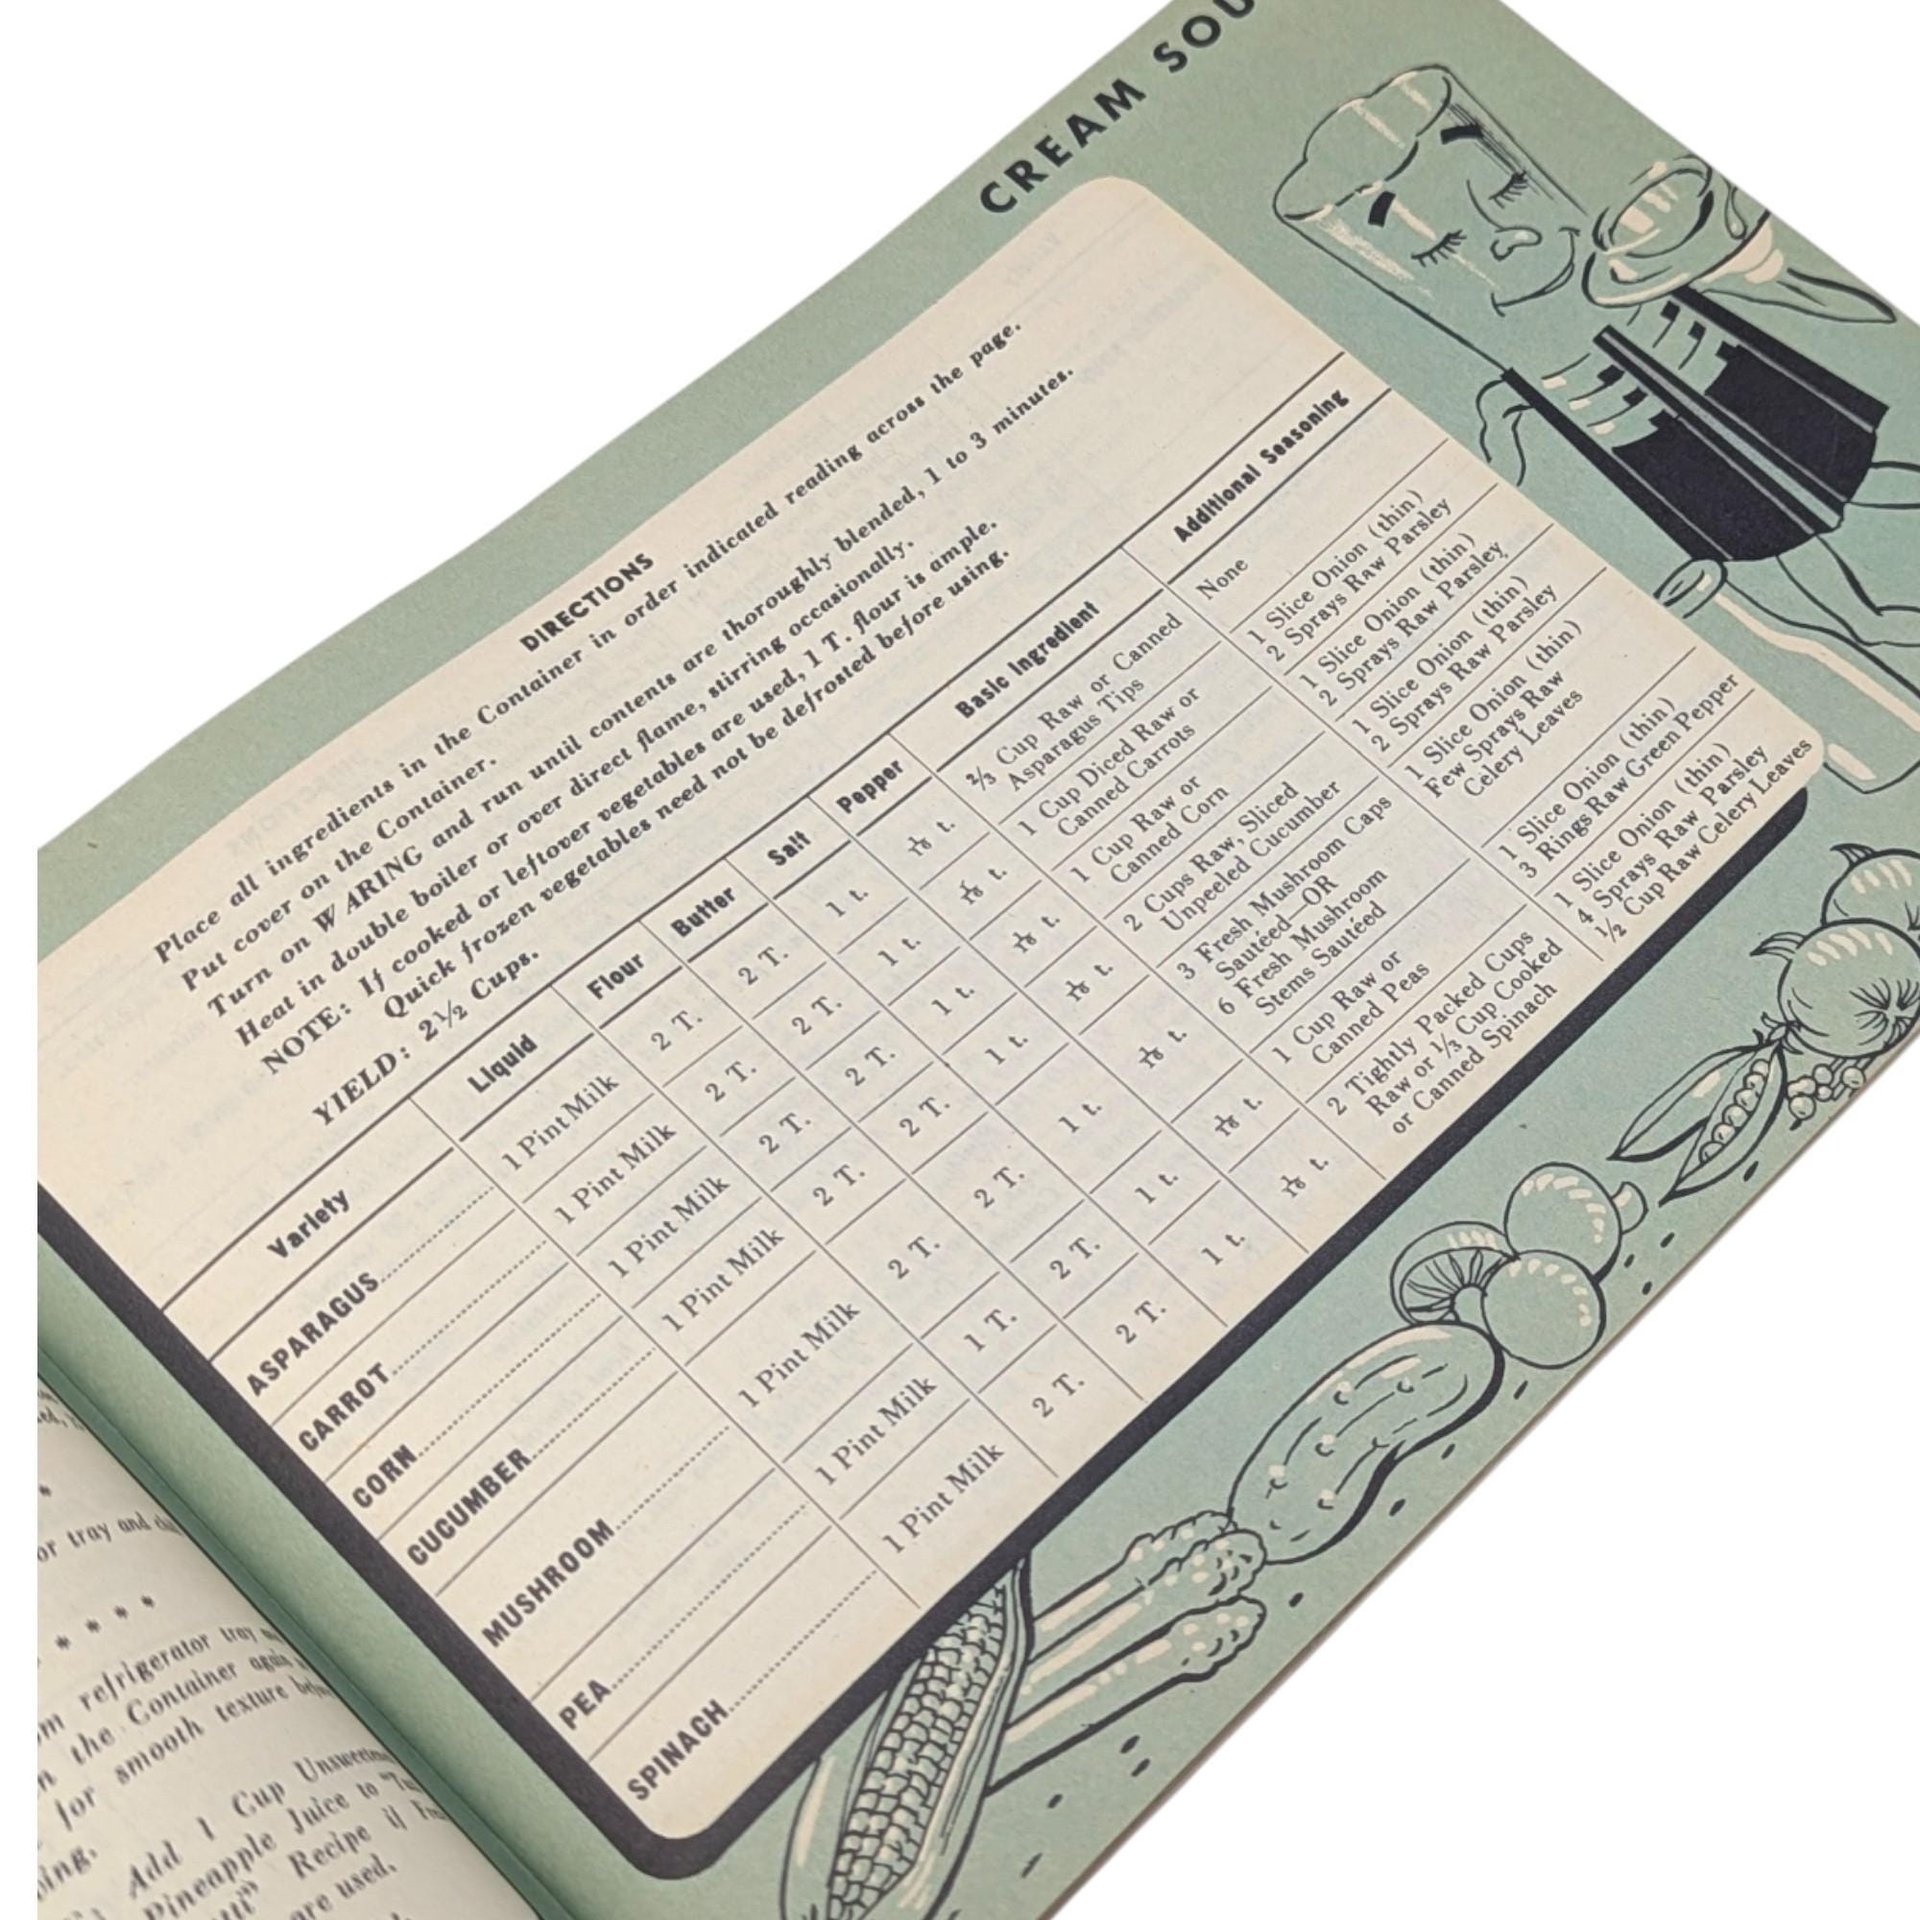 CREAM SOU
DIRECTIONS
Place all ingredients in the Container in order indicated reading across the page.
Put cover on the Container.
Turn on WARING and run until contents are thoroughly blended, 1 to 3 minutes.
Heat in double boiler or over direct flame, stirring occasionally.
NOTE: If cooked or leftover vegetables are used, 1 T. flour is ample.
Quick frozen vegetables need not be defrosted before using.
YIELD: 2½ Cups.
Variety Liquid Flour Butter Salt Pepper Basic Ingredient Additional Seasoning
ASPARAGUS 1 Pint Milk 2 T. 2 T. 1 t. 1/16 t. ⅔ Cup Raw or Canned None
Asparagus Tips
CARROT 1 Pint Milk 2 T. 2 T. 1 t. 1/16 t. 1 Cup Diced Raw or 1 Slice Onion (thin)
Canned Carrots 2 Sprays Raw Parsley
CORN 1 Pint Milk 2 T. 2 T. 1 t. 1/16 t. 1 Cup Raw or 1 Slice Onion (thin)
Canned Corn 2 Sprays Raw Parsley
CUCUMBER 1 Pint Milk 2 T. 2 T. 1 t. 1/16 t. 2 Cups Raw, Sliced 1 Slice Onion (thin)
Unpeeled Cucumber 2 Sprays Raw Parsley
MUSHROOM 1 Pint Milk 2 T. 2 T. 1 t. 1/16 t. 3 Fresh Mushroom Caps 1 Slice Onion (thin)
Sautéed—OR Few Sprays Raw
6 Fresh Mushroom Celery Leaves
Stems Sautéed
PEA 1 Pint Milk 1 T. 2 T. 1 t. 1/16 t. 1 Cup Raw or 1 Slice Onion (thin)
Canned Peas 3 Rings Raw Green Pepper
SPINACH 1 Pint Milk 2 T. 2 T. 1 t. 1/16 t. 2 Tightly Packed Cups 1 Slice Onion (thin)
Raw or ⅓ Cup Cooked 4 Sprays Raw Parsley
or Canned Spinach ½ Cup Raw Celery Leaves
or tray and
refrigerator tray
the Container again
for smooth texture
Add 1 Cup
Pineapple Juice to
Recipe if
are used,